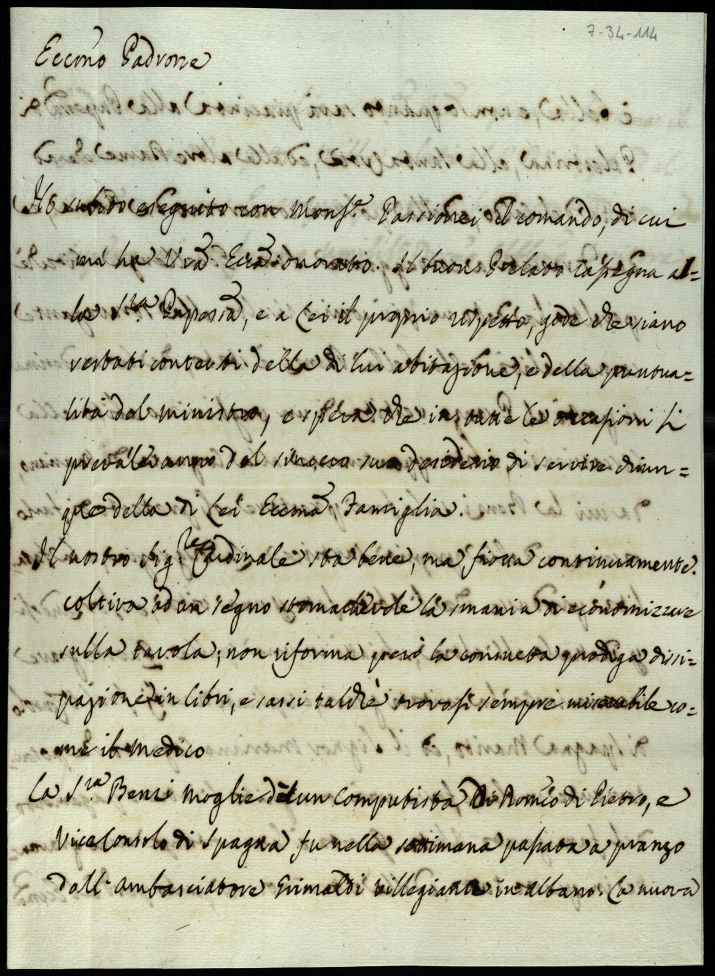 7-34-114
Eccmo Padrone
Ho subito eseguito con Monsr. Passionei il comando, di cui
mi ha Vra Ecca onorato. Il buon Prelato rassegna al=
la Sra Pnpessa, e a Lei il proprio rispetto, gode che siano
restati contenti della di lui abitazione, e della puntua=
lità del ministro, e spera che in tutte le occasioni si
prevaleranno del sincero suo desiderio di servire chiun=
que della di Lei Eccma Famiglia.
Il nostro Sigre Cardinale sta bene, ma fiotta continuamente.
coltiva ad un segno stomachevole la smania di economizzare
sulla tavola, non riforma però la consueta prodiga dissi=
pazione in libri, e sassi talchè trovasi sempre miserabile co=
me il medico
La Sra Benzi Moglie di un Computista di Romeo di Pietro, e
ViceConsolo di Spagna fu nella settimana passata a pranzo
dall'ambasciatore Grimaldi villegiante in albano. La nuova